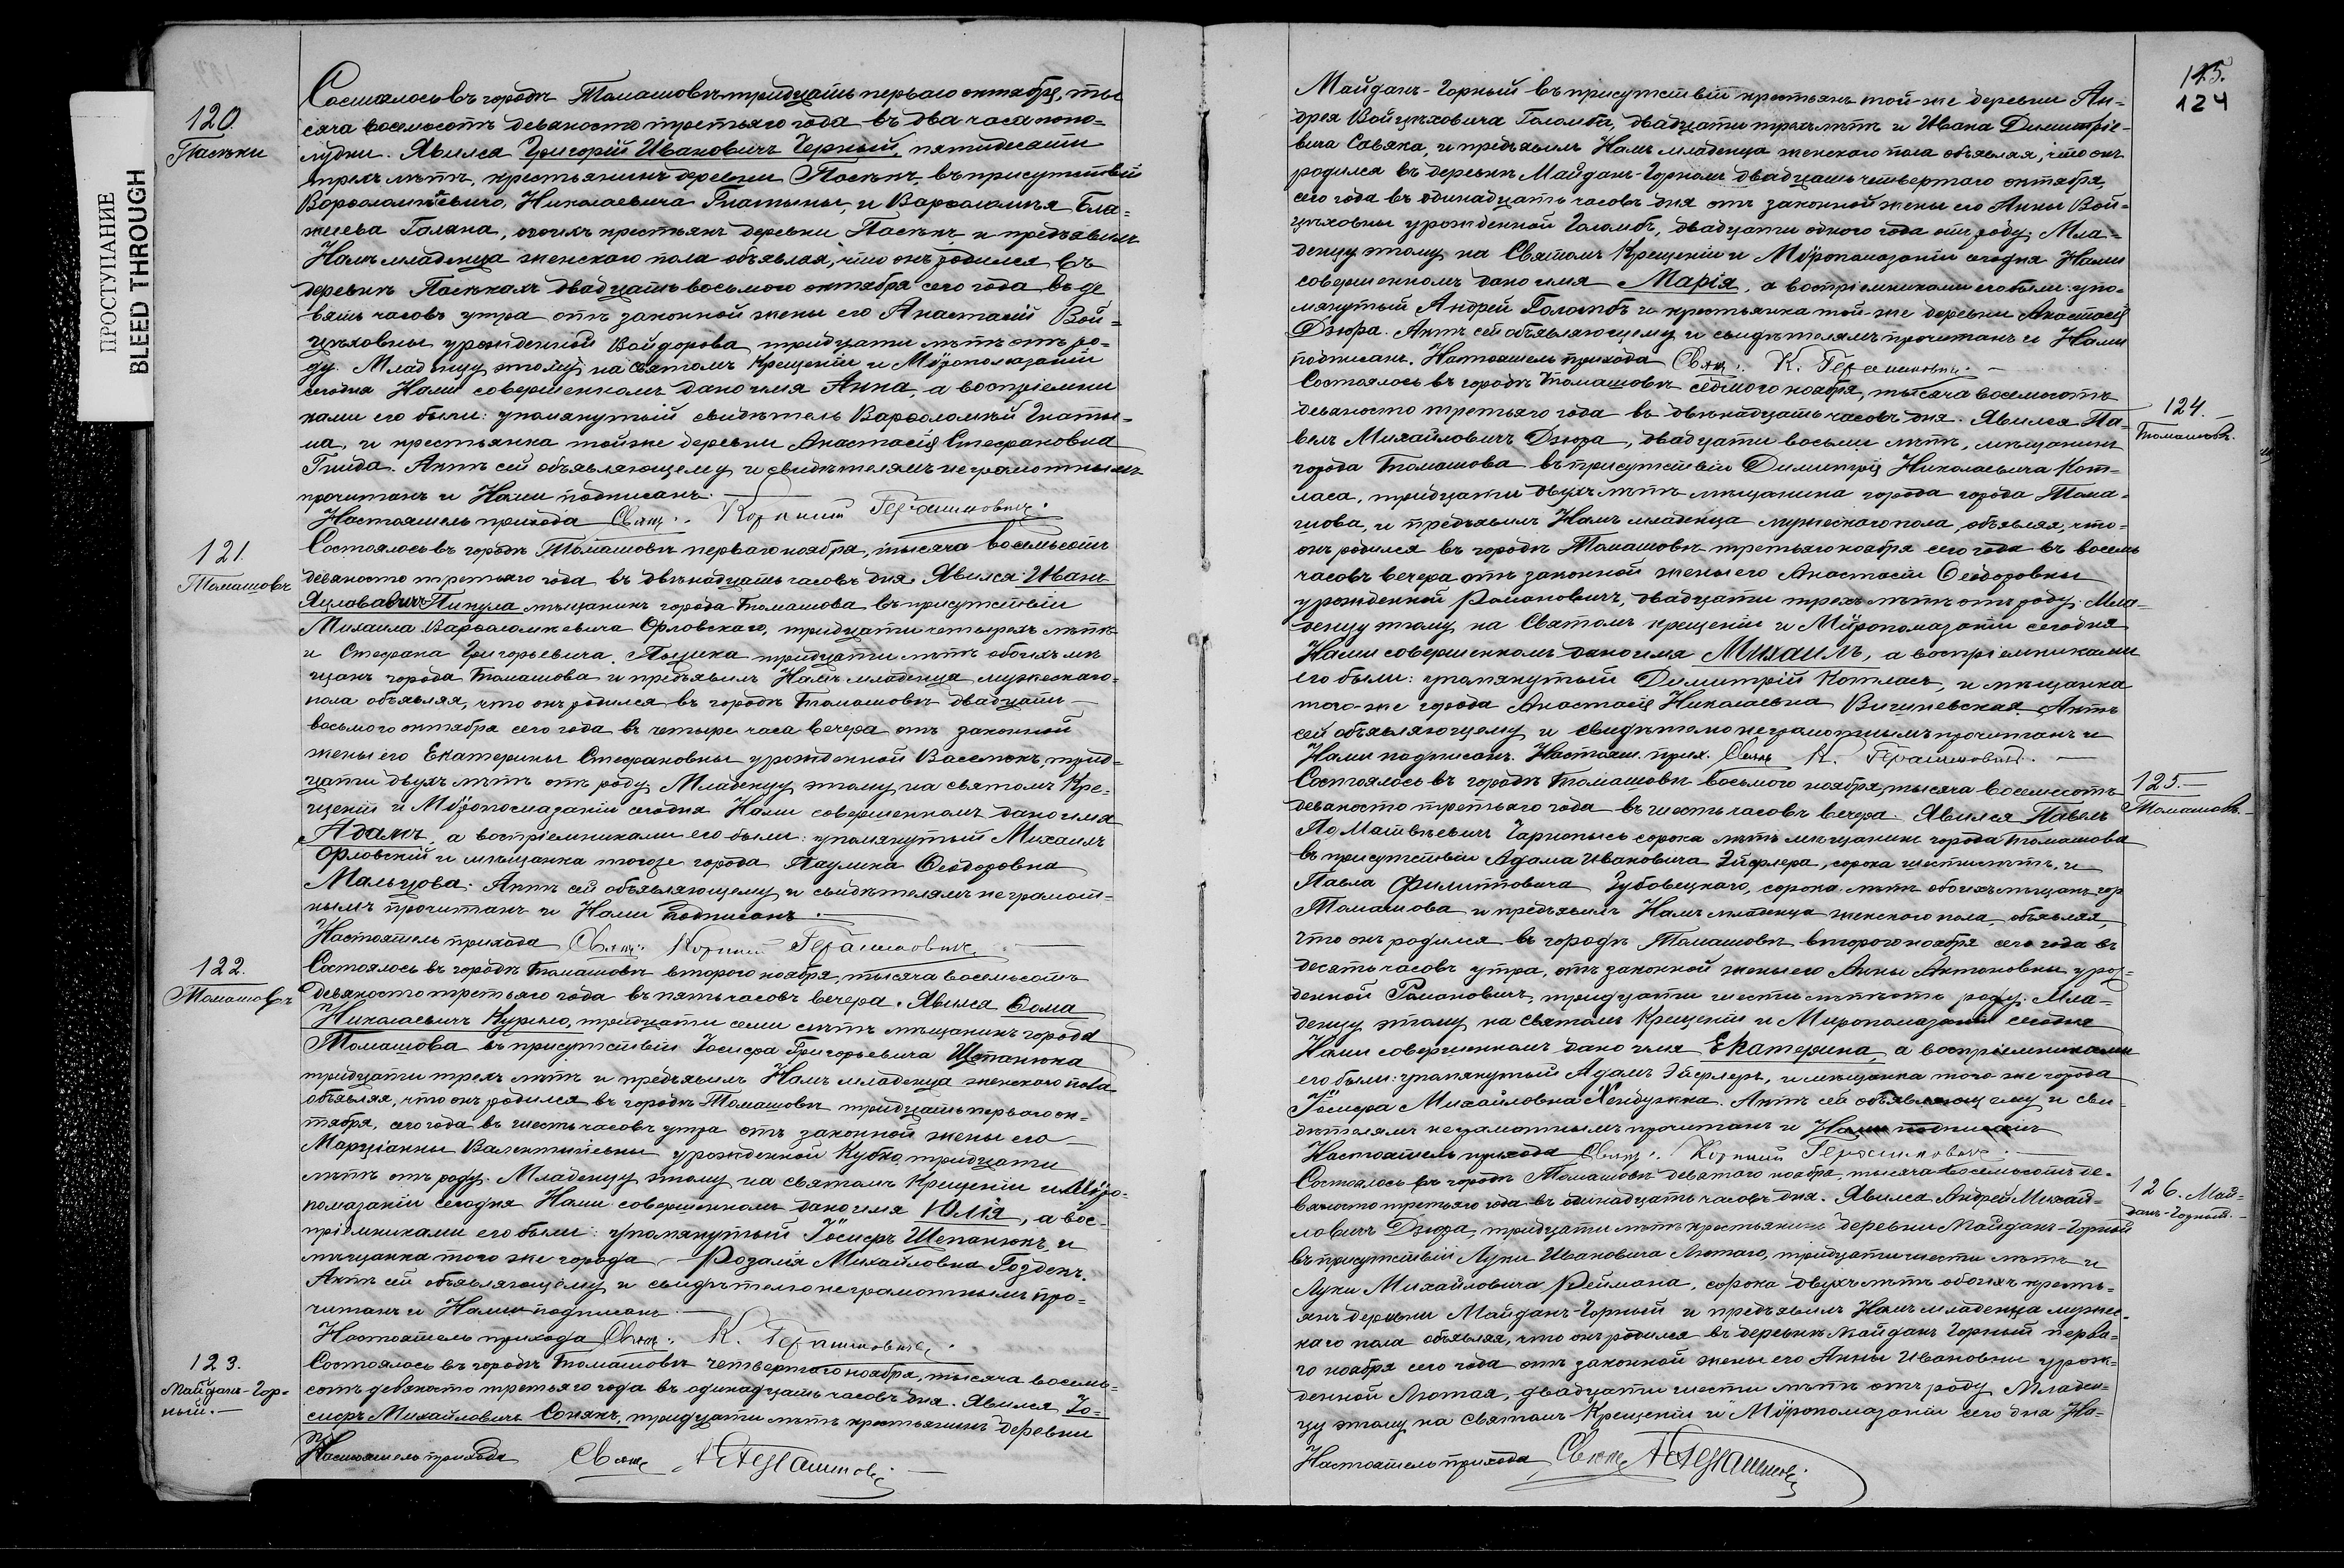 ПРОСТУПАНИЕ
BLEED THROUGH
120.
Пасѣки
Состоялось въ городѣ Томашовѣ тридцать перваго октября, ты-
сяча восемьсотъ девяносто третьяго года въ два часа попо-
лудни. Явился Григорій Ивановичъ Черный, пятидесяти
трехъ лѣтъ, крестьянинъ деревни Пасѣкъ, въ присутствіи
Николаевича Гнатыны, и Варѳоломѣя Бла-
жеева Галана, обоихъ крестьянъ деревни Пасѣкъ и предъявилъ
Намъ младенца женскаго пола объявляя, что онъ родился въ
деревнѣ Пасѣкахъ двадцать восьмого октября сего года въ де
вять часовъ утра отъ законной жены его Анастасіи Вой-
цѣховны урожденной Вайдорова тридцати лѣтъ отъ ро-
ду. Младенцу этому на святомъ Крещеніи и Мѵропомазаніи
сегодня Нами совершенномъ дано имя Анна, а воспріемни
ками его были: упомянутый свидѣтель Варѳоломѣй Гнаты-
на, и крестьянка той же деревни Анастасія Стефановна
Гнида. Актъ сей объявляющему и свидѣтелямъ неграмотнымъ
прочитанъ и Нами подписанъ.
Настоятель прихода Свящ. Корнилій Герашиовичъ.
121.
Томашовъ
Состоялось въ городѣ Томашовѣ перваго ноября, тысяча восемьсотъ
девяносто третьяго года въ двѣнадцать часовъ дня. Явился Иванъ
Пикула мѣщанинъ города Томашова въ присутствіи
Михаила Варѳоломѣевича Орловскаго, тридцати четырехъ лѣтъ
и Стефана Григорьевича Пыцика тридцати лѣтъ обоихъ мѣ
щанъ города Томашова и предъявилъ Намъ младенца мужескаго
пола объявляя, что онъ родился въ городѣ Томашовѣ двадцать
восьмого октября сего года въ четыре часа вечера отъ законной
жены его Екатерины Стефановны урожденной Васемокъ, трид-
цати двухъ лѣтъ отъ роду. Младенцу этому на святомъ Кре-
щеніи и Мѵропомазаніи сегодня Нами совершенномъ дано имя
Адамъ, а воспріемниками его были: упомянутый Михаилъ
Орловскій и мѣщанка того же города Паулина Ѳеодоровна
Мальцова. Актъ сей объявляющему и свидѣтелямъ неграмот-
нымъ прочитанъ и Нами подписанъ.
Настоятель прихода Свящ. Корнилій Герашиовичъ
122.
Томашовъ
Состоялось въ городѣ Томашовѣ второго ноября, тысяча восемьсотъ
девяносто третьяго года въ пять часовъ вечера. Явился Ѳома
Николаевичъ Курило, тридцати семи лѣтъ мѣщанинъ города
Томашова въ присутствіи Іосифа Григорьевича Щепанюка
тридцати трехъ лѣтъ и предъявилъ Намъ младенца женскаго пола
объявляя, что онъ родился въ городѣ Томашовѣ тридцать перваго ок-
тября, сего года въ шесть часовъ утра отъ законной жены его
Марціанны Валентьевны урожденной Кубко, тридцати
лѣтъ отъ роду. Младенцу этому на святомъ Крещеніи и Мѵро-
помазаніи сегодня Нами совершенномъ дано имя Юлія, а вос-
пріемниками его были: упомянутый Іосифъ Щепанюкъ и
мѣщанка того же города Розалія Михайловна Гозденъ.
Актъ сей объявляющему и свидѣтелю неграмотнымъ про-
читанъ и Нами подписанъ.
Настоятель прихода Свящ. К. Герашиовичъ.
123.
Майданъ-Гор-
ный.
Состоялось въ городѣ Томашовѣ четвертаго ноября, тысяча восемь-
сотъ девяносто третьяго года въ одинадцать часовъ дня. Явился Іо-
сифъ Михайловичъ Сонякъ, тридцати лѣтъ крестьянинъ деревни
Настоятель прихода Свящ.
125.
124
Майданъ-Горный въ присутствіи крестьянъ той-же деревни Ан-
дрея Войцѣховича Голомба, двадцати трехъ лѣтъ и Ивана Димитріе-
вича Савяка, и предъявилъ Намъ младенца женскаго пола объявляя, что онъ
родился въ деревнѣ Майданъ-Горномъ двадцать четвертаго октября,
сего года въ одинадцать часовъ дня отъ законной жены его Анны Вой-
цѣховны урожденной Голомбъ, двадцати одного года отъ роду. Мла-
денцу этому на Святомъ Крещеніи и Мѵропомазаніи сегодня Нами
совершенномъ дано имя Марія, а воспріемниками его были: упо-
мянутый Андрей Голомбъ и крестьянка той-же деревни Анастасія
Дзюра. Актъ сей объявляющему и свидѣтелямъ прочитанъ и Нами
подписанъ. Настоятель прихода Свящ. К. Герашиовичъ.
124.
Томашовъ.
Состоялось въ городѣ Томашовѣ седмого ноября, тысяча восемьсотъ
девяносто третьяго года въ двѣнадцать часовъ дня. Явился Па-
велъ Михайловичъ Дзюра, двадцати восьми лѣтъ, мѣщанинъ
города Томашова въ присутствіи Димитрія Николаевича Кот-
ласа, тридцати двухъ лѣтъ мѣщанина города города Тома-
шова, и предъявилъ Намъ младенца мужескаго пола, объявляя, что
онъ родился въ городѣ Томашовѣ третьяго ноября сего года въ восемь
часовъ вечера отъ законной жены его Анастасіи Ѳеодоровны
урожденной Романовичъ, двадцати трехъ лѣтъ отъ роду. Мла-
денцу этому на Святомъ крещеніи и Мѵропомазаніи сегодня
Нами совершенномъ дано имя Михаилъ, а воспріемниками
его были: упомянутый Димитрій Котласъ, и мѣщанка
того-же города Анастасія Николаевна Вишневская. Актъ
сей объявляющему и свидѣтелю неграмотнымъ прочитанъ и
Нами подписанъ. Настоят. прих. Свящ. К. Герашиовичъ.
125.
Томашовъ.
Состоялось въ городѣ Томашовѣ восьмого ноября, тысяча восемьсотъ
девяносто третьяго года въ шесть часовъ вечера. Явился Павелъ
Матвѣевичъ Чарнопысь сорока лѣтъ мѣщанинъ города Томашова
въ присутствіи Адама Ивановича Эйзлера, сорока шести лѣтъ, и
Павла Филипповича Зубовецкаго, сорока лѣтъ обоихъ мѣщанъ гор
Томашова и предъявилъ Намъ младенца женскаго пола, объявляя,
что онъ родился въ городѣ Томашовѣ второго ноября сего года въ
десять часовъ утра, отъ законной жены его Анны Антоновны урож-
денной Романовичъ, тридцати шести лѣтъ отъ роду. Мла-
денцу этому на святомъ Крещеніи и Миропомазаніи сегодня
Нами совершенномъ дано имя Екатерина, а воспріемниками
его были: упомянутый Адамъ Эйзлеръ, и мѣщанка того же города
Іосифа Михайловна. Актъ сей объявляющему и сви-
дѣтелямъ неграмотнымъ прочитанъ и Нами подписанъ
Настоятель прихода Свящ. Корнилій Герашиовичъ.
126. Май-
данъ-Горный.
Состоялось въ городѣ Томашовѣ девятаго ноября, тысяча восемьсотъ де-
вяносто третьяго года въ одинадцать часовъ дня. Явился Андрей Михай-
ловичъ Дзюра, тридцати лѣтъ крестьянинъ деревни Майданъ-Горный
въ присутствіи Луки Ивановича Лютаго, тридцати шести лѣтъ и
Луки Михайловича Реймана, сорока двухъ лѣтъ обоихъ кресть-
янъ деревни Майданъ-Горный и предъявилъ Намъ младенца мужес-
каго пола объявляя, что онъ родился въ деревнѣ Майданъ Горный перва-
го ноября сего года отъ законной жены его Анны Ивановны урож-
денной Лютая, двадцати шести лѣтъ отъ роду. Младен-
цу этому на святомъ Крещеніи и Мѵропомазаніи сего дня На-
Настоятель прихода Свящ.